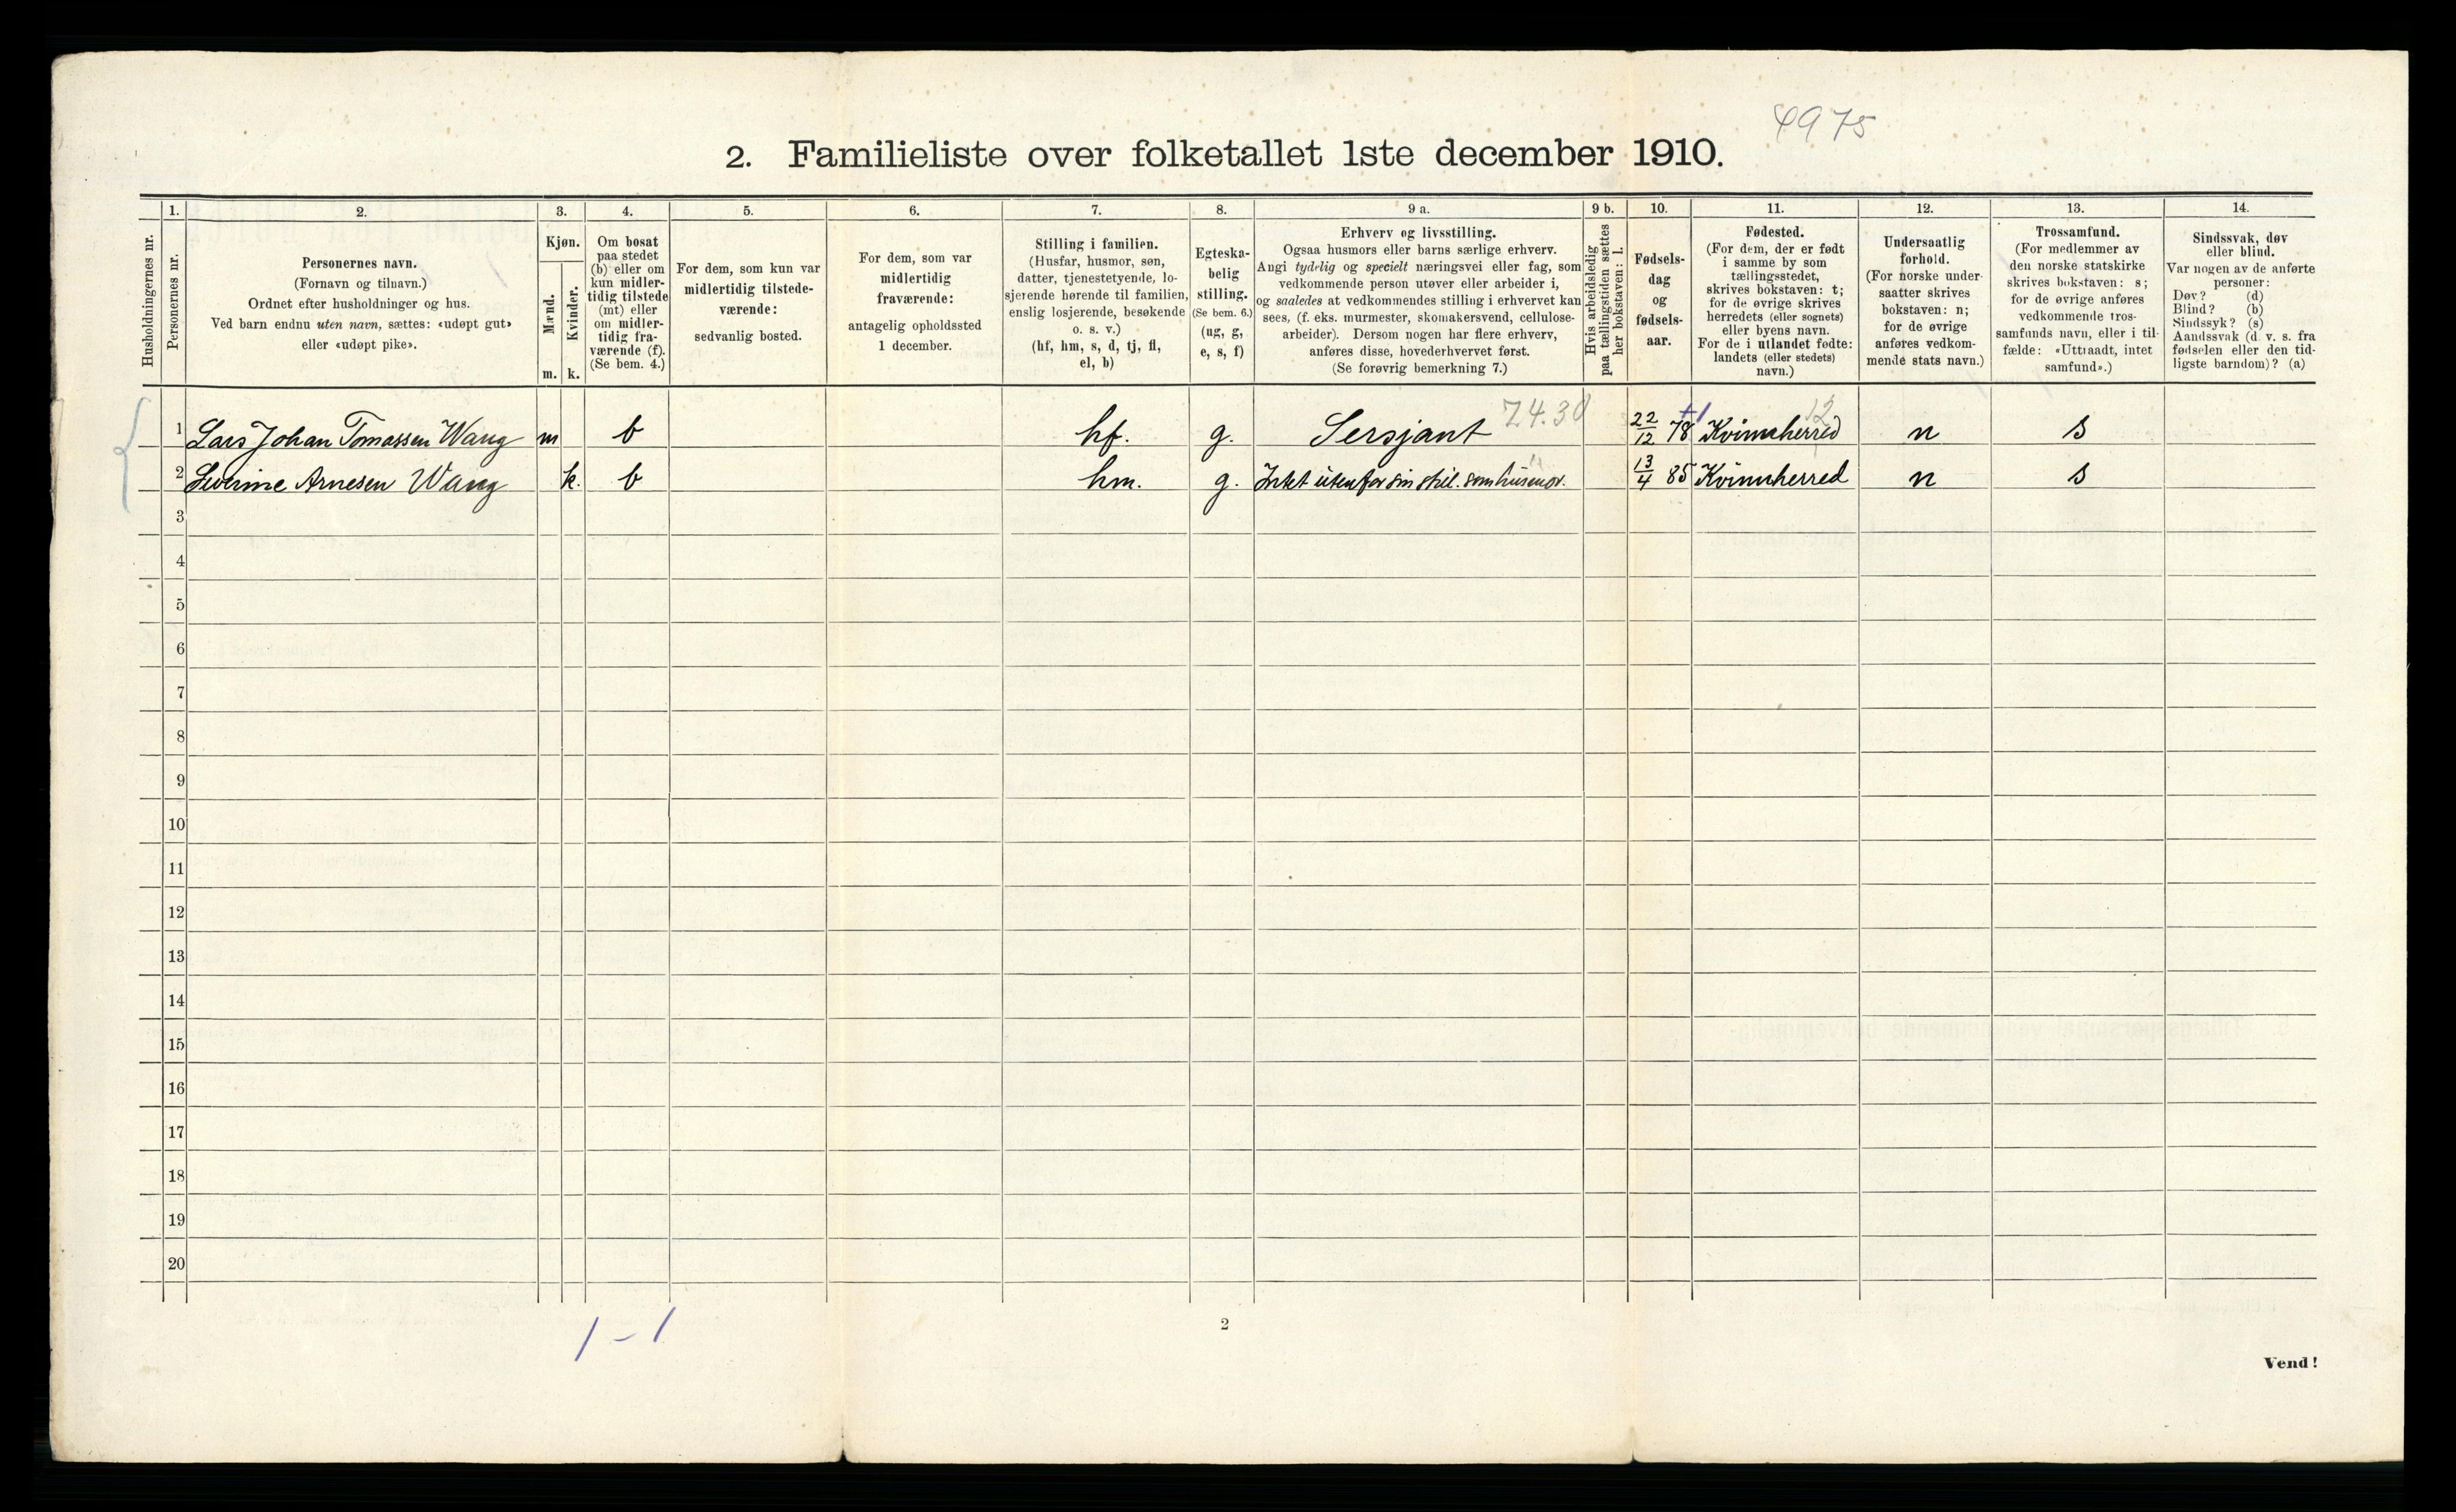 4975
2. Familieliste over folketallet 1ste december 1910.
Husholdningernes nr.
1.
Personernes nr.
2.
Personernes navn.
(Fornavn og tilnavn.)
Ordnet efter husholdninger og hus.
Ved barn endnu uten navn, sættes: «udøpt gut»
eller «udøpt pike».
3.
Kjøn.
Mænd.
Kvinder.
m. k.
4.
Om bosat
paa stedet
(b) eller om
kun midler-
tidig tilstede
(mt) eller
om midler-
tidig fra-
værende (f).
(Se bem. 4.)
5.
For dem, som kun var
midlertidig tilstede-
værende:
sedvanlig bosted.
6.
For dem, som var
midlertidig
fraværende:
antagelig opholdssted
1 december.
7.
Stilling i familien.
(Husfar, husmor, søn,
datter, tjenestetyende, lo-
sjerende hørende til familien,
enslig losjerende, besøkende
o. s. v.)
(hf, hm, s, d, tj, fl,
el, b)
8.
Egteska-
belig
stilling.
(Se bem. 6.)
(ug, g,
e, s, f)
9 a.
Erhverv og livsstilling.
Ogsaa husmors eller barns særlige erhverv.
Angi tydelig og specielt næringsvei eller fag, som
vedkommende person utøver eller arbeider i,
og saaledes at vedkommendes stilling i erhvervet kan
sees, (f. eks. murmester, skomakersvend, cellulose-
arbeider). Dersom nogen har flere erhverv,
anføres disse, hovederhvervet først.
(Se forøvrig bemerkning 7.)
9 b.
Hvis arbeidsledig
paa tællingstiden sættes
her bokstaven: l.
10.
Fødsels-
dag
og
fødsels-
aar.
11.
Fødested.
(For dem, der er født
i samme by som
tællingsstedet,
skrives bokstaven: t;
for de øvrige skrives
herredets (eller sognets)
eller byens navn.
For de i utlandet fødte:
landets (eller stedets)
navn.)
12.
Undersaatlig
forhold.
(For norske under-
saatter skrives
bokstaven: n;
for de øvrige
anføres vedkom-
mende stats navn.)
13.
Trossamfund.
(For medlemmer av
den norske statskirke
skrives bokstaven: s;
for de øvrige anføres
vedkommende tros-
samfunds navn, eller i til-
fælde: «Uttraadt, intet
samfund».)
14.
Sindssvak, døv
eller blind.
Var nogen av de anførte
personer:
Døv? (d)
Blind? (b)
Sindssyk? (s)
Aandssvak (d. v. s. fra
fødselen eller den tid-
ligste barndom)? (a)
74.30 +1 12
1 Lars Johan Tomassen Wang m b hf. g. Sersjant 22/12 78 Kvinnherred n s
2 Severine Arnesen Wang k. b hm. g. Intet utenfor sin stil. som husmor. 13/4 85 Kvinnherred n s
3
4
5
6
7
8
9
10
11
12
13
14
15
16
17
18
19
20
1 - 1
2
Vend!